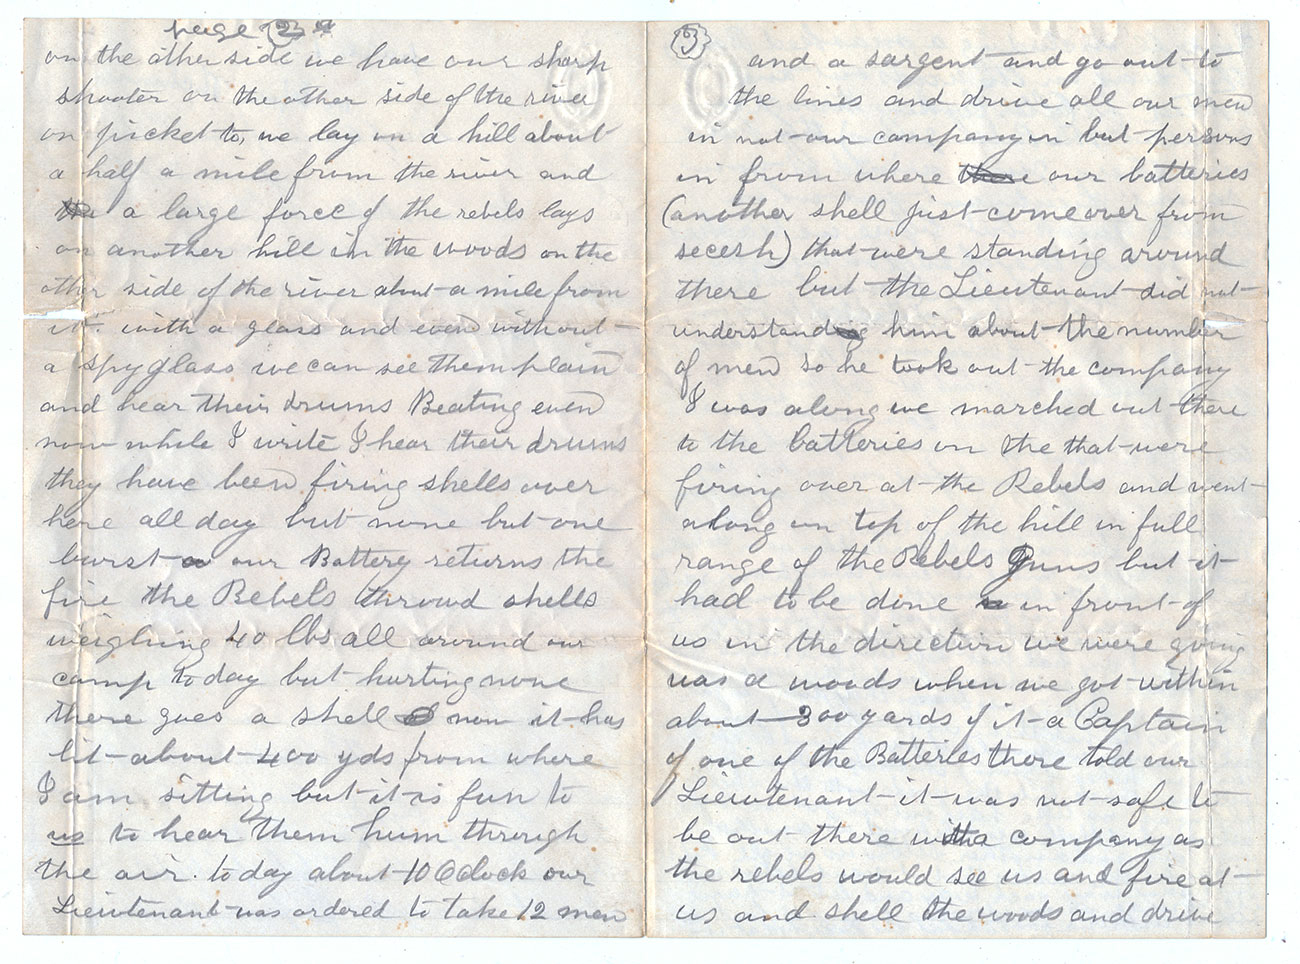 page 2
on the other side we have our sharp
shooter on the other side of the river
on picket to, we lay on a hill about
a half a mile from the river and
a large force of the rebels lays
on another hill in the woods on the
other side of the river about a mile from
it. with a glass and even without
a spyglass we can see them plain
and hear their drums Beating even
now while I write I hear their drums
they have been firing shells over
here all day but none but one
burst our Battery returns the
fire the Rebels throwd shells
weighing 40 lbs all around our
camp to day but hurting none
there goes a shell now it has
lit about 400 yds from where
I am sitting but it is fun to
us to hear them hum through
the air. to day about 10 Oclock our
Lieutenant was ordered to take 12 men
3
and a sargent and go out to
the lines and drive all our men
in not our company in but persons
in from where our batteries
(another shell just come over from
secesh) that were standing around
there but the Lieutenant did not
understand him about the number
of men so he took out the company
I was along we marched out there
to the batteries on the that were
firing over at the Rebels and went
along on top of the hill in full
range of the Rebels Guns but it
had to be done in front of
us in the direction we were going
was a woods when we got within
about 300 yards of it a Captain
of one of the Batteries there told our
Lieutenant it was not safe to
be out there with a company as
the rebels would see us and fire at
us and shell the woods and drive